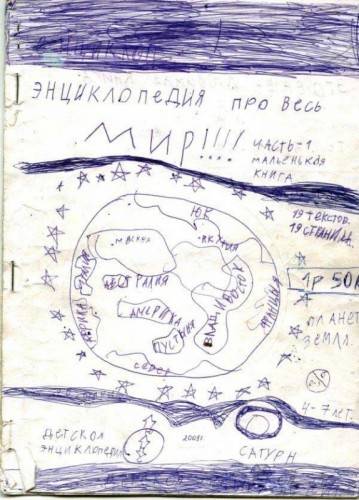 ЭНЦИКЛОПЕДИЯ ПРО ВЕСЬ
МИР!!!!
ЧАСТЬ-1
МАЛЕНЬКАЯ
КНИГА
19 ТЕКСТОВ.
19 СТРАНИЦ.
1р 50к
ПЛАНЕТ
ЗЕМЛЯ.
4-7 ЛЕТ
ЮГ
МОСКВА
АВСТРАЛИЯ
АМЕРИКА
ПУСТЫНЯ
ВЛАДИВОСТОК
СЕВЕР
ДЕТСКАЯ
ЭНЦИКЛОПЕДИЯ
2009г.
САТУРН